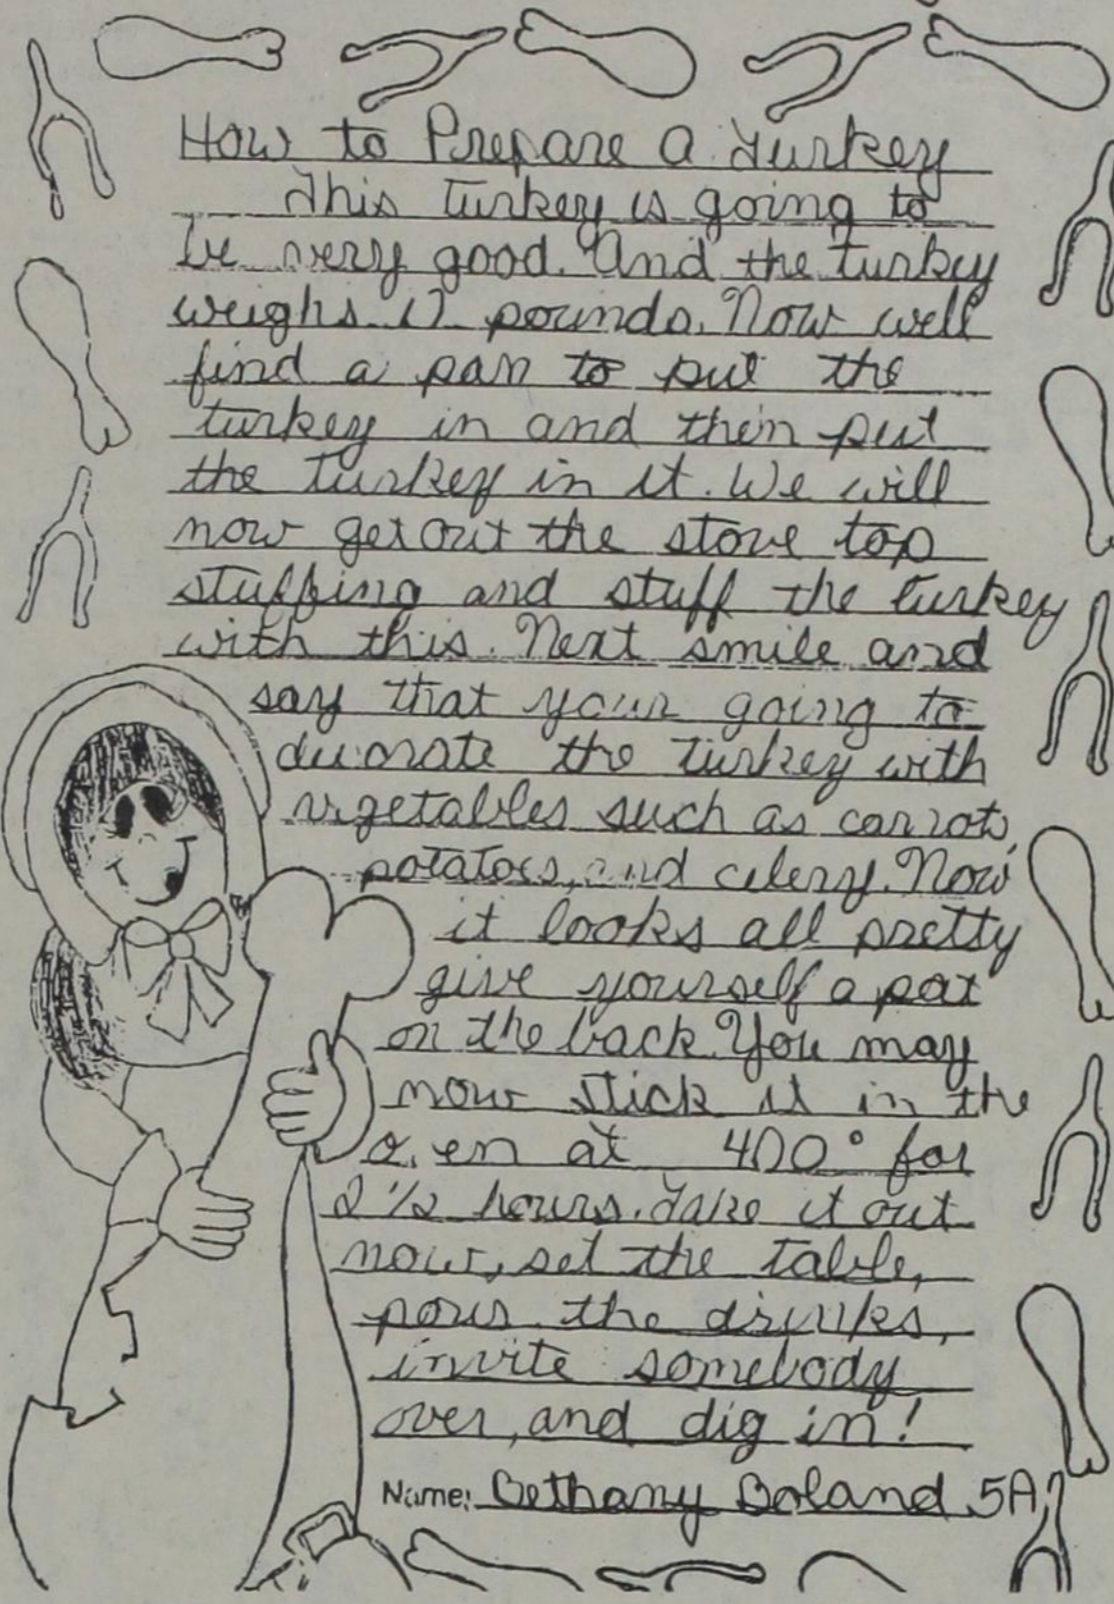 How to Prepare A Turkey
This turkey is going to
be very good. And the turkey
weighs 17 pounds. Now well
find a pan to put the
turkey in and then put
the turkey in it. We will
now get out the stove top
stuffing and stuff the turkey
with this. Next smile and
say that your going to
decorate the turkey with
vegetables such as carrots,
potatoes, and celery. Now
it looks all pretty
give yourself a pat
on the back. You may
now stick it in the
oven at 400° for
2 1/2 hours. Take it out
now, set the table,
pour the drinks,
invite somebody
over, and dig in!
Name: Bethany Boland 5A